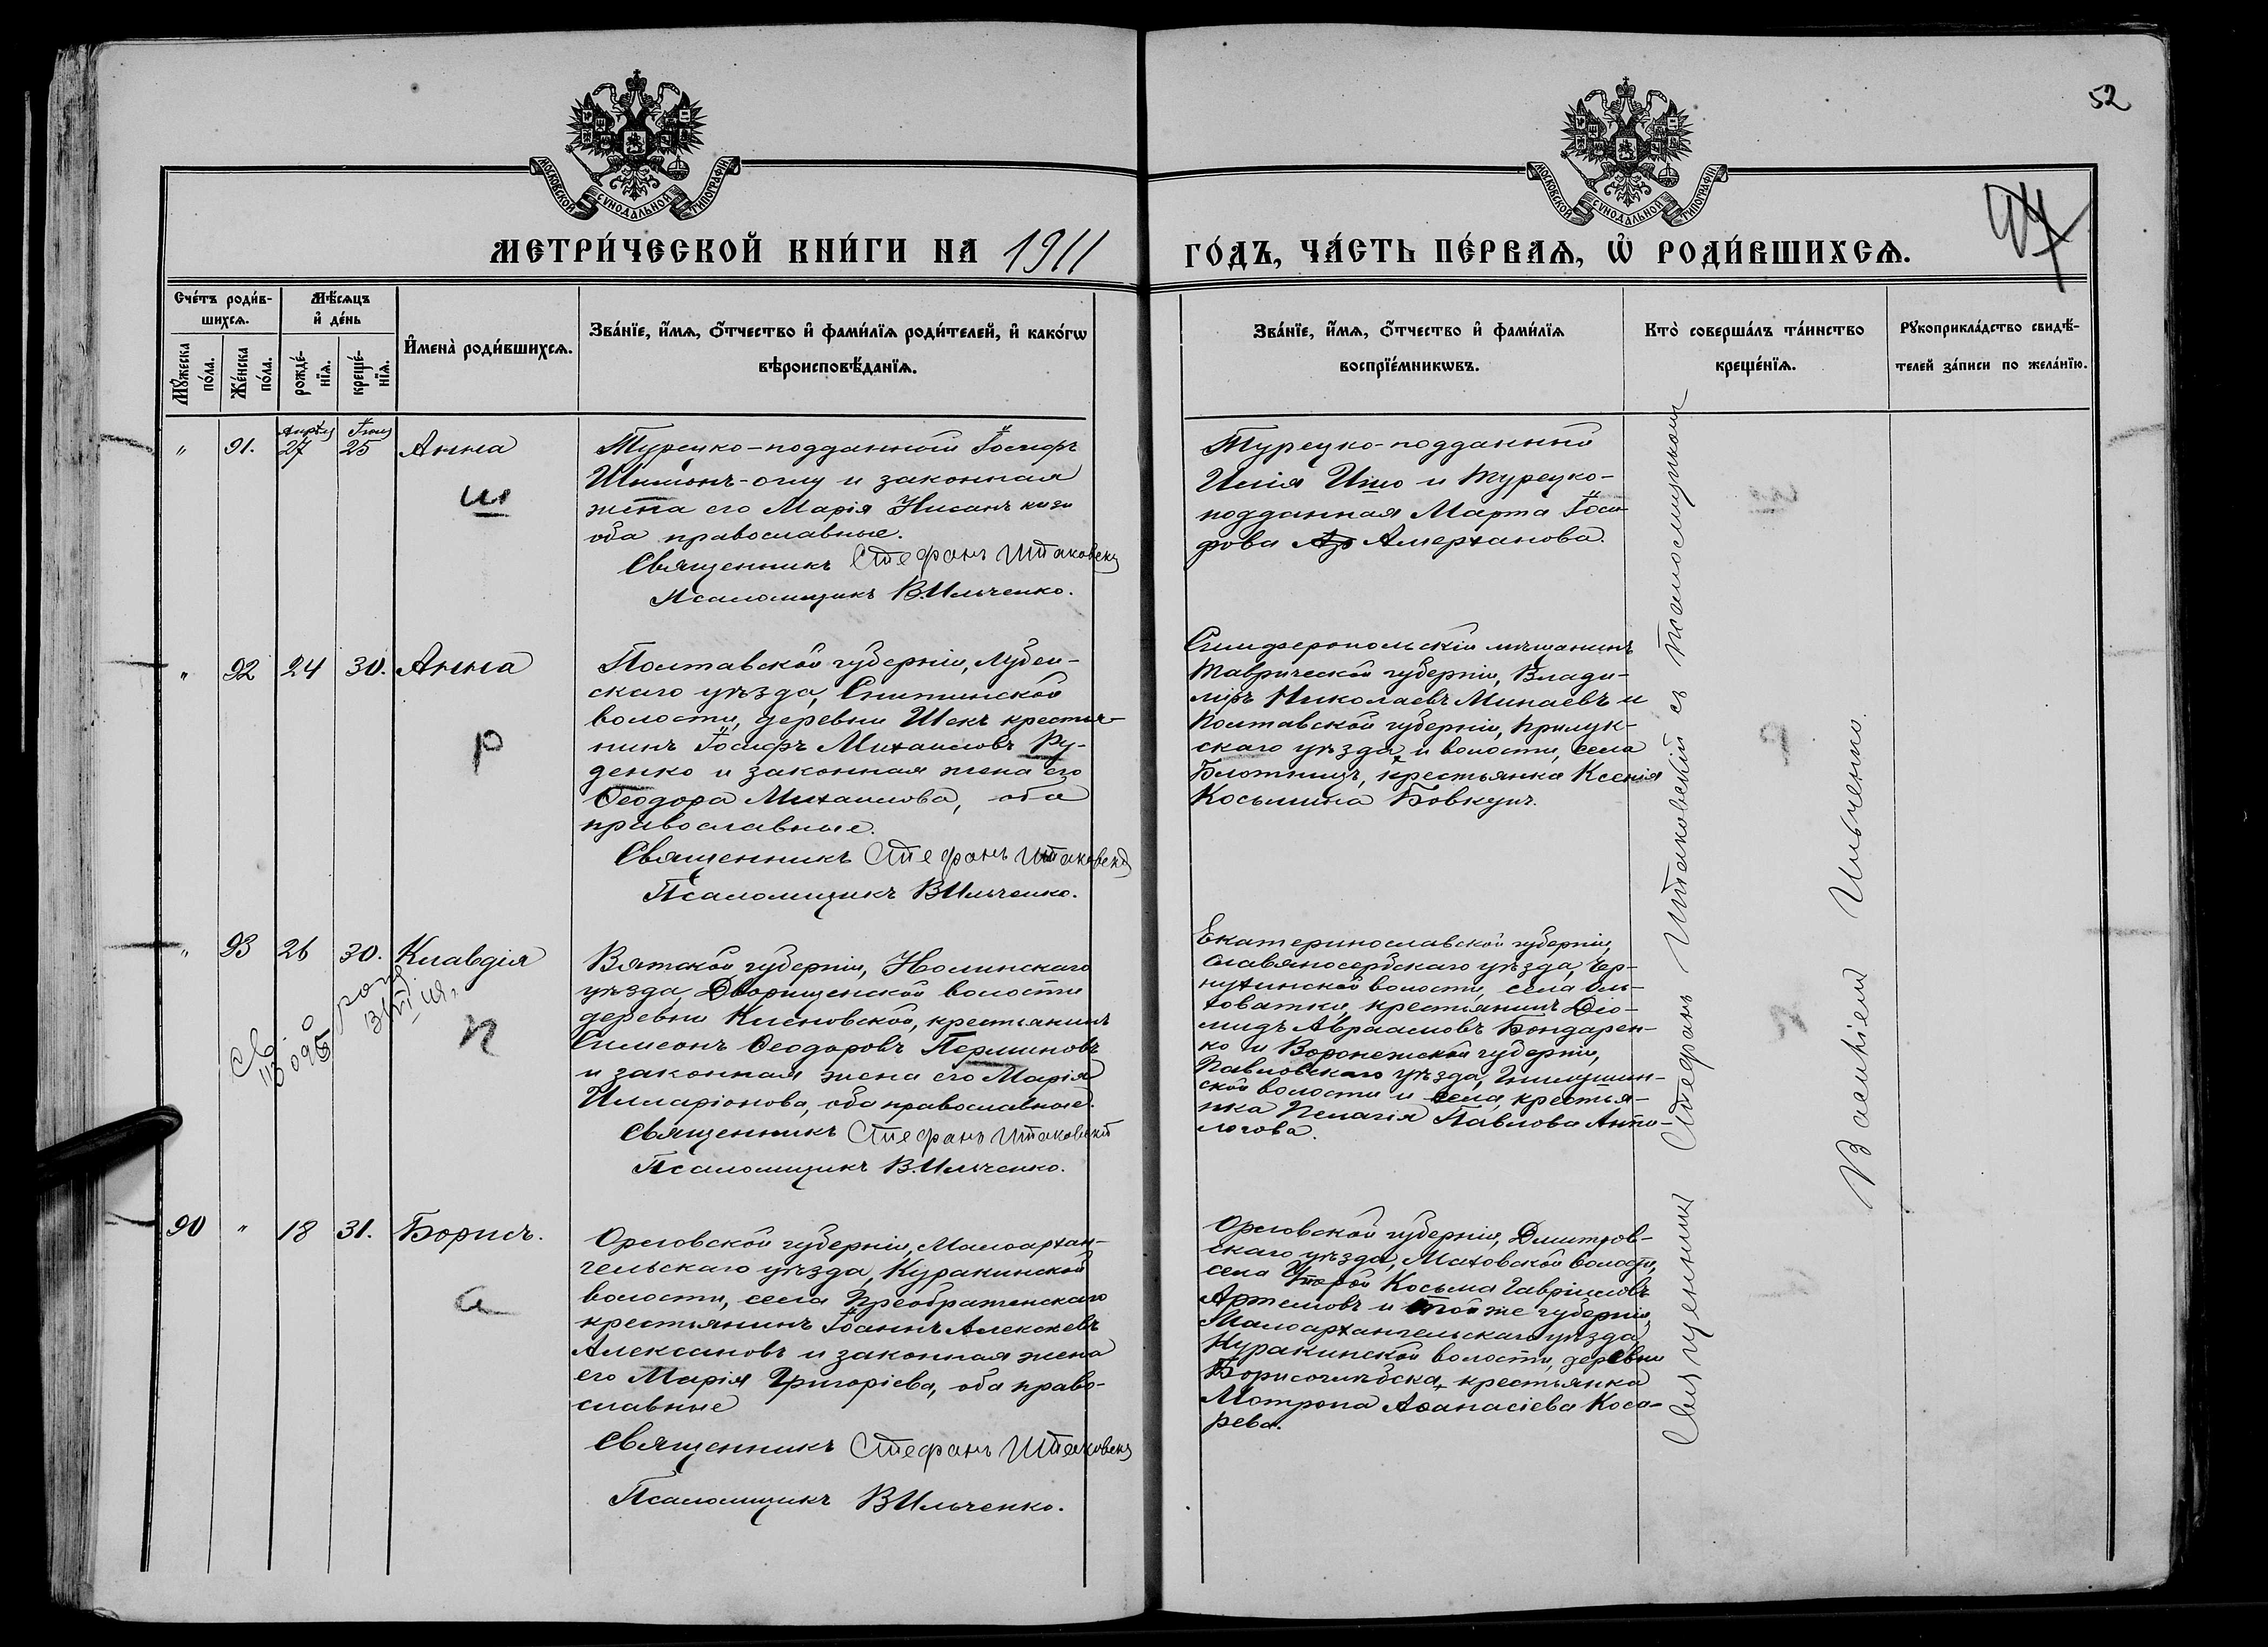 52
МОСКОВСКОЙ СУНОДАЛЬНОЙ ТИПОГРАФІИ
МОСКОВСКОЙ СУНОДАЛЬНОЙ ТИПОГРАФІИ
МЕТРИ́ЧЕСКОЙ КНИ́ГИ НА 1911
ГО́ДЪ, ЧА́СТЬ ПЕ́РВАѦ, Ѽ РОДИ́ВШИХСѦ.
Сче́тъ роди́в-
шихсѧ.
Мꙋ́жеска
по́ла.
Же́нска
по́ла.
Мѣ́сѧцъ
и҆ де́нь
рожде́-
нїѧ.
креще́-
нїѧ.
И҆мена̀ роди́вшихсѧ.
Зва́нїе, и҆́мѧ, ѻ҆́тчество и҆ фами́лїѧ роди́телей, и҆ како́гѡ
вѣроисповѣ́данїѧ.
Зва́нїе, и҆́мѧ, ѻ҆́тчество и҆ фами́лїѧ
воспрїе́мникѡвъ.
Кто̀ соверша́лъ та́инство
креще́нїѧ.
Рꙋкоприкла́дство свидѣ́-
телей за́писи по жела́нїю.
" 91. Апрѣля 27 25 Анна
ш
Турецко-подданный Іосифъ
-оглу и законная
жена его Марія Нисанъ кизи
оба православные.
Священникъ Стефанъ Штаковскій
Псаломщикъ В.Ильченко.
Турецко-подданный
Илія и Турецко-
подданная Марта Іоси-
фова Амерханова.
" 92 24 30. Анна
р
Полтавской губерніи, Лубен-
скаго уѣзда, Снитинской
волости, деревни Шекъ крестья-
нинъ Іосифъ Михаиловъ Ру-
денко и законная жена его
Ѳеодора Михаилова, оба
православные.
Священникъ Стефанъ Штаковскій
Псаломщикъ В Ильченко.
Симферопольскій мѣщанинъ
Таврической губерніи, Влади-
міръ Николаевъ Минаевъ и
Полтавской губерніи, Прилук-
скаго уѣзда, и волости, села
Блотницъ, крестьянка Ксенія
Косьмина Бовкунъ.
" 93 26 30. Клавдія
п
Вятской губерніи, Нолинскаго
уѣзда, Дворищенской волости
деревни Кисновской, крестьянинъ
Симеонъ Ѳеодоровъ Перминовъ
и законная жена его Марія
Илларіонова, оба православные.
Священникъ Стефанъ Штаковскій
Псаломщикъ В.Ильченко.
Екатеринославской губерніи,
Славяносербскаго уѣзда, Чер-
нухинской волости, села Оль-
ховатки, крестьянинъ Діо-
мидъ Авраамовъ Бондарен-
ко и Воронежской губерніи,
Павловскаго уѣзда,
ской волости и села, крестья-
нка Пелагія Павлова Анто-
логова.
90 " 18 31. Борисъ.
а
Орловской губерніи, Малоархан-
гельскаго уѣзда, Куракинской
волости, села Преображенскаго
крестьянинъ Іоаннъ Алексѣевъ
Алексановъ и законная жена
его Марія Григоріева, оба право-
славные
Священникъ Стефанъ Штаковскій
Псаломщикъ В Ильченко.
Орловской губерніи, Дмитров-
скаго уѣзда, Маховской волости,
села Косьма Гавріиловъ
Артемовъ и той же губерніи,
Малоархангельскаго уѣзда,
Куракинской волости, деревни
Борисоглѣбска, крестьянка
Мотрона Аѳанасіева Коса-
рева.
Священникъ Стефанъ Штаковскій съ псаломщикомъ
Василіемъ Ильченко.